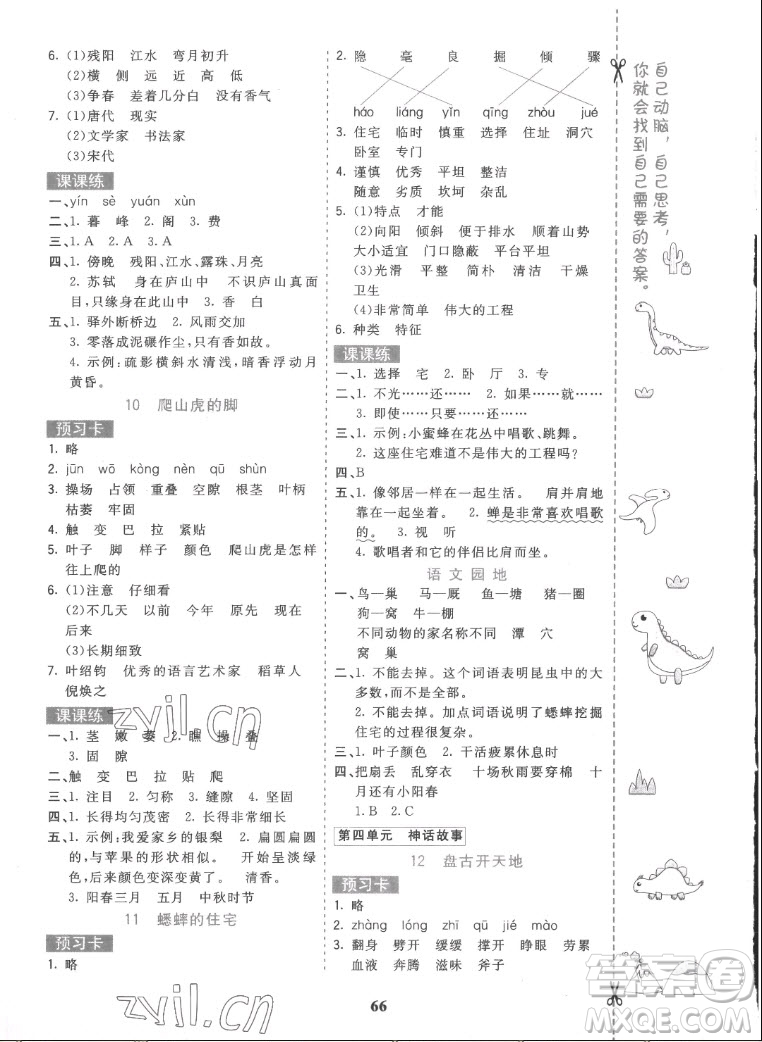 6. (1)残阳 江水 弯月初升
(2)横 侧 远 近 高 低
(3)争春 差着几分白 没有香气
7. (1)唐代 现实
(2)文学家 书法家
(3)宋代
课课练
一、yín sè yuán xùn
二、1. 暮 峰 2. 阁 3. 费
三、1. A 2. A 3. A
四、1. 傍晚 残阳、江水、露珠、月亮
2. 苏轼 身在庐山中 不识庐山真面
目,只缘身在此山中 3. 香 白
五、1. 驿外断桥边 2. 风雨交加
3. 零落成泥碾作尘,只有香如故。
4. 示例:疏影横斜水清浅,暗香浮动月
黄昏。
10 爬山虎的脚
预习卡
1. 略
2. jūn wō kòng nèn qū shùn
3. 操场 占领 重叠 空隙 根茎 叶柄
枯萎 牢固
4. 触 变 巴 拉 紧贴
5. 叶子 脚 样子 颜色 爬山虎是怎样
往上爬的
6. (1)注意 仔细看
(2)不几天 以前 今年 原先 后来
如果
(3)长期细致
7. 叶绍钧 优秀的语言艺术家 稻草人
倪焕之
课课练
一、1. 茎 嫩 萎 2. 瞧 操 叠
3. 固 隙
二、触 变 巴 拉 贴 爬
三、1. 注目 2. 匀称 3. 缝隙 4. 坚固
四、1. 长得均匀茂密 2. 细小
五、1. 示例:我爱家乡的银梨 2. 扁圆扁圆
的,与苹果的形状相似。 开始呈淡绿
色,后来颜色逐渐变黄了。 清香。
3. 阳春三月 五月 中秋时节
11 蟋蟀的住宅
预习卡
1. 略
2. 隐 毫 良 掘 倾 骤
háo liáng yǐn qīng zhòu jué
3. 住宅 临时 慎重 选择 住址 洞穴
卧室 专门
4. 谨慎 优秀 平坦 整洁
随意 劣质 坎坷 杂乱
5. (1)特点 才能
(2)向阳 倾斜 便于排水 顺着山势
大小适宜 门口隐蔽 平台平坦
(3)光滑 平整 简朴 清洁 干燥
卫生
(4)非常简单 伟大的工程
6. 种类 特征
课课练
一、1. 选择 宅 2. 卧 厅 3. 专
二、1. 不光……还…… 2. 如果……就……
3. 即使……只要……还……
三、1. 示例:小蜜蜂在花丛中唱歌、跳舞。
2. 这座住宅难道不是伟大的工程吗?
四、B
五、1. 像邻居一样在一起生活。 肩并肩地
靠在一起坐着。 2. 蝉是非常喜欢唱歌
的。 3. 视 听
4. 歌唱者和它的肩距离很近。
语文园地
一、鸟—巢 马—厩 鱼—塘 猪—圈
狗—窝 牛—棚
不同动物的家名称不同 潭 穴
窝 巢
二、1. 不能去掉。这个词语表明昆虫中的大
多数,而不是全部。
2. 不能去掉。加点词语写了蟋蟀挖掘
住宅的过程很漫长。
三、1. 叶子颜色 2. 干活疲累休息时
四、把扇丢 乱穿衣 十场秋雨要穿棉 十月
还有小阳春
1. B 2. C
第四单元 神话故事
12 盘古开天地
预习卡
1. 略
2. zhàng lóng zhī qū jié mào
3. 翻身 劈开 缓缓 撑开 睁眼 劳累
血液 奔腾 滋味 斧子
66
自己动脑,自己思考,
你就会找到自己需要的答案。
zyjl.cn
zyjl.cn
答案圈